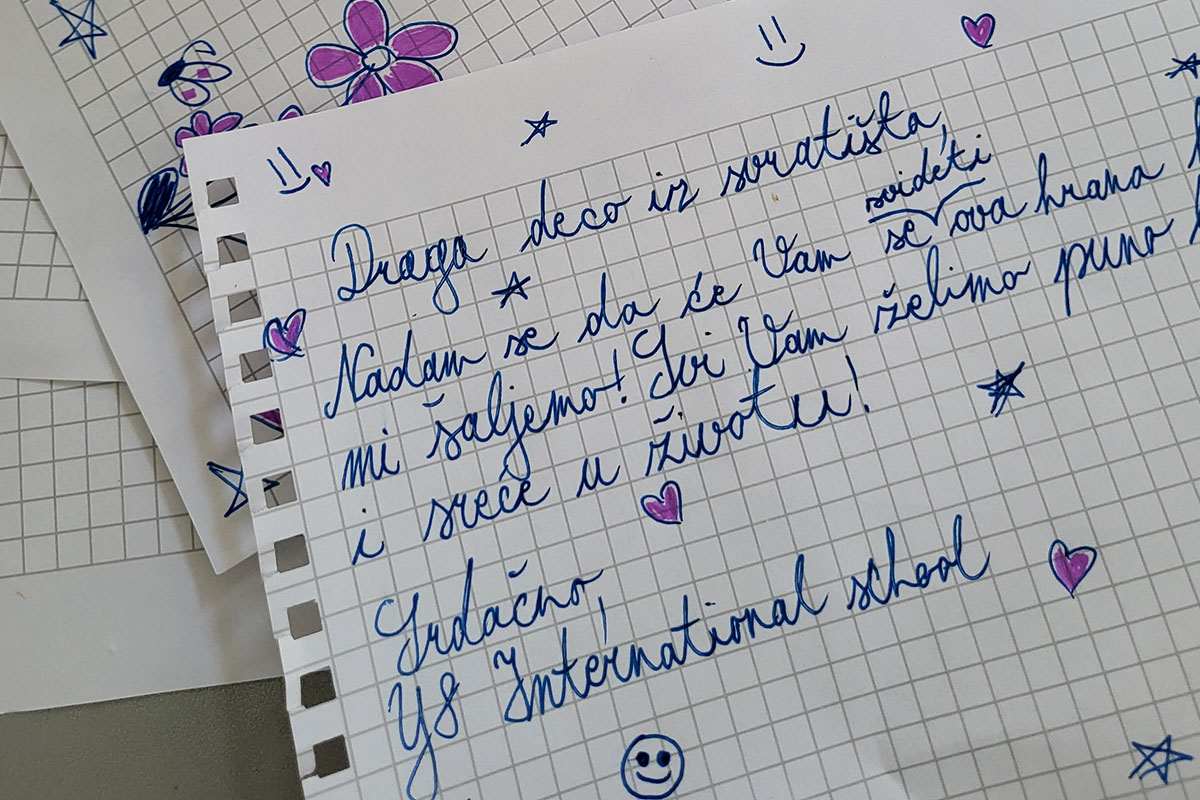 Draga deco iz svratišta,
svideti
Nadam se da će Vam se ova hrana
mi šaljemo! Svi Vam želimo puno
i sreće u životu!
Srdačno,
Y8 International school